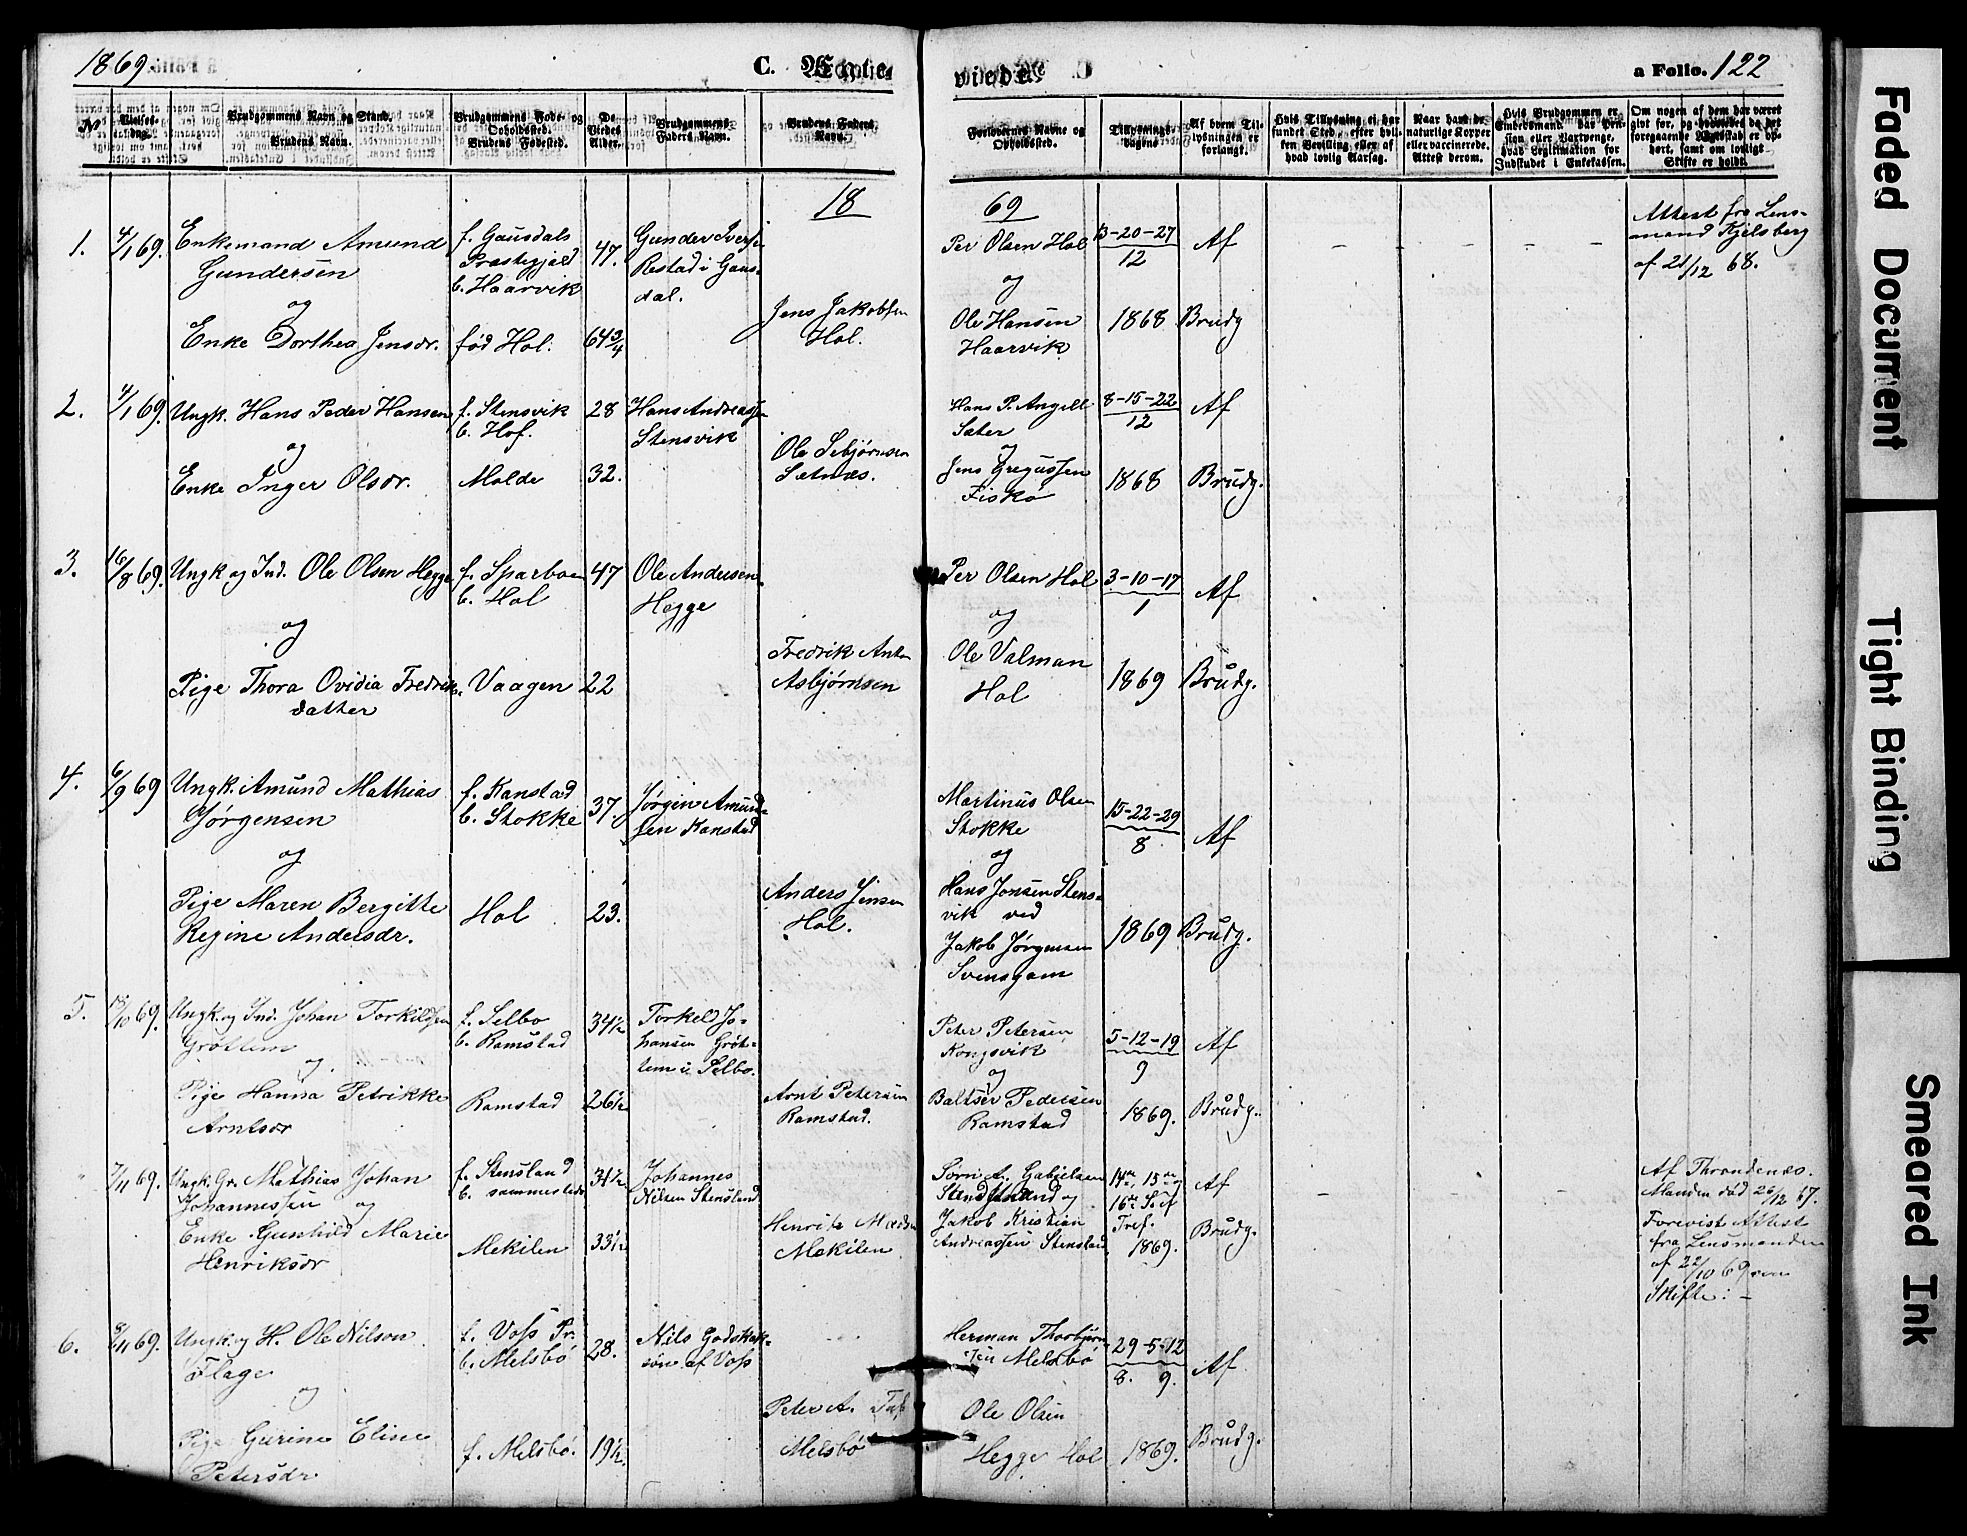 1869.
C. Egte-
viede.
a Folio. 122
No
Vielses-dag.
Brudgommens Navn og Stand.
Brudens Navn.
Brudgommens Føde- og Opholdssted.
Brudens Fødested.
De Viedes Alder.
Brudgommens Faders Navn.
Brudens Faders Navn.
Forlovernes Navne og Opholdssted.
Tillysnings-dagene
Af hvem Tillysningen er forlangt.
Hvis Tillysning ej har fundet Sted, efter hvilken Bevilling eller af hvad lovlig Aarsag.
Naar havt de naturlige Kopper eller vaccinerede. Attest derom.
Hvis Brudgommen er Embedsmand, har Pension eller Vartpenge, hvad Legitimation for Indskudet i Enkekassen.
Om nogen af dem har været givt før, og hvorledes da det foregaaende Ægteskab er ophørt, samt om lovligt Skifte er holdt.
18
69
1. 4/1 69. Enkemand Amund f. Gausdals 47. Gunder Ivers-
Gundersen Præstegjæld Restad i Gaus-
og b. Haarvik dal.
Enke Dorthea Jensdr. fød Hol. 64 3/4 Jens Jakobsen
Hol.
Per Olsen Hol 13-20-27 Af – – – –
og 12
Ole Hansen 1868 Brudg
Haarvik
Attest fra Lens-
mand Kjelsberg
af 21/12 68.
2. 4/1 69. Ungk. Hans Peder Hansen f. Stensvik 28 Hans Andreassen
og b. Hof. Stensvik
Enke Inger Olsdr. Molde 32. Ole Sebjørnsen
Sætnæs.
Hans P. Angell 8-15-22 Af
Sæter 12
og
Jens Gregussen 1868 Brudg.
Fiskø
3. 16/8 69. Ungk og Ind. Ole Olsen Hegge f. Sparboen 47 Ole Andersen
og b. Hol Hegge
Pige Thora Ovidia Fredriks- Vaagen 22 Fredrik Anton
datter Asbjørnsen
Per Olsen Hol 3-10-17 Af
og 1
Ole Valman 1869 Brudg.
Hol
4. 6/9 69 Ungk. Amund Mathias f. Kanstad 37. Jørgen Amund-
Jørgensen b. Stokke sen Kanstad
og
Pige Maren Bergitte Hol 23. Anders Jensen
Regine Andersdr. Hol.
Martinus Olsen 15-22-29 Af
Stokke 8
og
Hans Jonsen Stens-
vik ved 1869 Brudg.
Jakob Jørgensen
Svensgam
5. /10 69. Ungk. og Ind. Johan Torkildsen f. Selbo 34½ Torkel Jo-
Grøttem b. Ramstad hansen Grøt-
og tem i Selbo.
Pige Hanna Petrikke Ramstad 26½ Arnt Petersen
Arntsdr Ramstad.
Peter Petersen 5-12-19 Af
Kongsvik 9
og
Baltser Pedersen 1869. Brudg.
Ramstad
" 7/11 69. Ungk. Gr. Mathias Johan f. Stensland 31½ Johannes
Johannessen og b. sammesteds Nilsen Stensland
Enke Gunhild Marie Mekilen 33½ Henrik
Henriksdr Mekilen
Søren A. Gabrielsen 14de, 15de og Af –
og 16de S. ef
Jakob Kristian Tref. Brudg.
Andreassen Stensland 1869.
Af Throndenæs.
Manden død 26/12 67.
Forevist Attest
fra Lensmanden
af 22/10 69 om
Skifte: –
6. 8/11 69. Ungk. og H. Ole Nilson f. Voss Pr. 28. Nils Godskalk-
Flage b. Melsbø søn af Voss
og
Pige Gurine Eline f. Melsbø. 19½ Peter A.
Petersdr Melsbø
Herman Thorbjørn- 29-5-12 Af
sen Melsbø 8. 9.
Ole Olsen
Hegge Hol 1869. Brudg.
Faded Document
Tight Binding
Smeared Ink